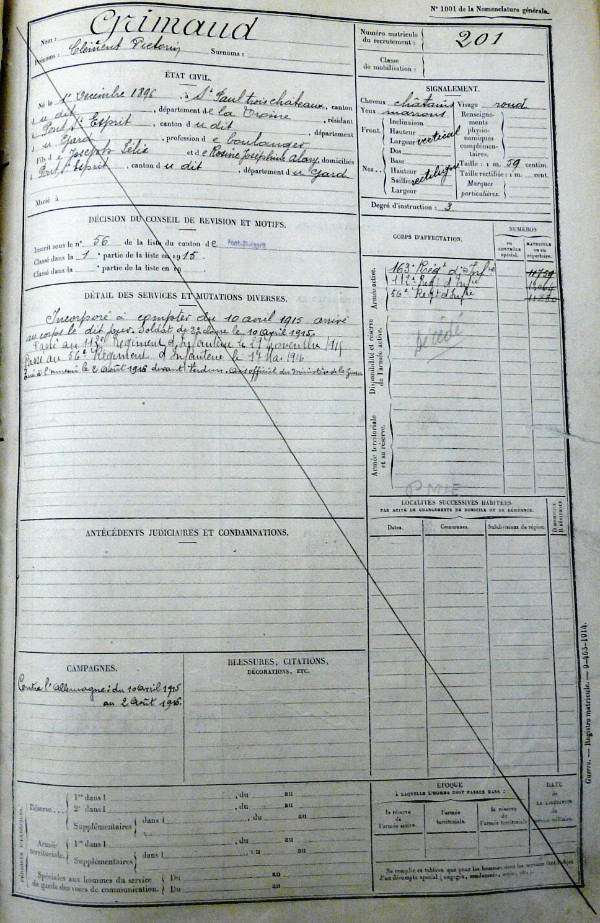 N° 1001 de la Nomenclature générale.
Nom : Grimaud
Prénoms : Clément Victorin Surnoms :
Numéro matricule du recrutement : 201
Classe de mobilisation :
ÉTAT CIVIL.
Né le 1er Décembre 1896, à St Paul trois chateaux, canton
du dit, département de la Drome, résidant
à Pont St Esprit, canton du dit, département
du Gard, profession de boulanger
Fils de Joseph Félix et de Rosine Joséphine Alary, domiciliés
à Pont St Esprit, canton du dit, département du Gard
Marié à
SIGNALEMENT.
Cheveux chatains Visage rond
Yeux marrons
Renseignements physionomiques complémentaires.
Front. Inclinaison
Hauteur
Largeur vertical
Nez. Dos
Base
Hauteur
Saillie rectiligne
Largeur
Taille : 1 m. 59 centim.
Taille rectifiée : 1 m. cent.
Marques particulières.
Degré d'instruction : 3
DÉCISION DU CONSEIL DE REVISION ET MOTIFS.
Inscrit sous le n° 56 de la liste du canton de
Classé dans la 1e partie de la liste en 1915.
Classé dans la partie de la liste en 19
CORPS D'AFFECTATION.
NUMÉROS
au contrôle spécial.
matricule ou au répertoire.
Armée active.
163e Régt d'Infie
112e Regt d'Infie
56e Regt d'Infie
Disponibilité et réserve de l'armée active.
Décédé
Armée territoriale et sa réserve.
DÉTAIL DES SERVICES ET MUTATIONS DIVERSES.
Incorporé à compter du 10 avril 1915 arrivé
au corps le dit jour. Soldat de 2e classe le 10 avril 1915.
Passé au 112e Regiment d'Infanterie le novembre 1915
Passé au 56e Regiment d'Infanterie le 17 Mai 1916
Tué à l'ennemi le 2 Août 1916 devant Verdun. Avis officiel du Ministère de la Guerre
LOCALITÉS SUCCESSIVES HABITÉES
PAR SUITE DE CHANGEMENTS DE DOMICILE OU DE RÉSIDENCE.
Dates. Communes. Subdivisions de région.
ANTÉCÉDENTS JUDICIAIRES ET CONDAMNATIONS.
CAMPAGNES.
Contre l'Allemagne : du 10 avril 1915
au 2 Août 1916.
BLESSURES, CITATIONS,
DÉCORATIONS, ETC.
Guerre. — Registre matricule. — 9-465-1914.
Réserve 1re dans l , du au
2e dans l , du au
Supplémentaires dans l , du au
Armée territoriale. 1re dans l , du au
Supplémentaires dans l , du au
Spéciales aux hommes du service
de garde des voies de communication. Du au
Du au
ÉPOQUE
À LAQUELLE L'HOMME DOIT PASSER DANS :
la réserve de l'armée active.
l'armée territoriale.
la réserve de l'armée territoriale
DATE
de
LA LIBÉRATION
du
service militaire.